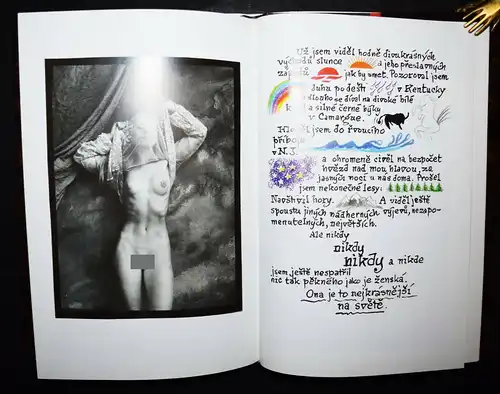 Už jsem viděl hodně divukrásných
východů slunce a jeho přeslavných
západů jak by smet. Pozoroval jsem
duhu po dešti v Kentucky
a dlouho se díval na divoké bílé
a silné černé býky
v Camargue.
jsem do řvoucího
příboje
v N.J.
a ohromeně civěl na bezpočet
hvězd nad mou hlavou, za
jasných nocí u nás doma. Prošel
jsem nekonečné lesy.
Navštívil hory. A viděl ještě
spoustu jiných nádherných výjevů, nezapo-
menutelných, největších.
Ale nikdy
nikdy
nikdy a nikde
jsem ještě nespatřil
nic tak pěkného jako je ženská.
Ona je to nejkrásnější
na světě.